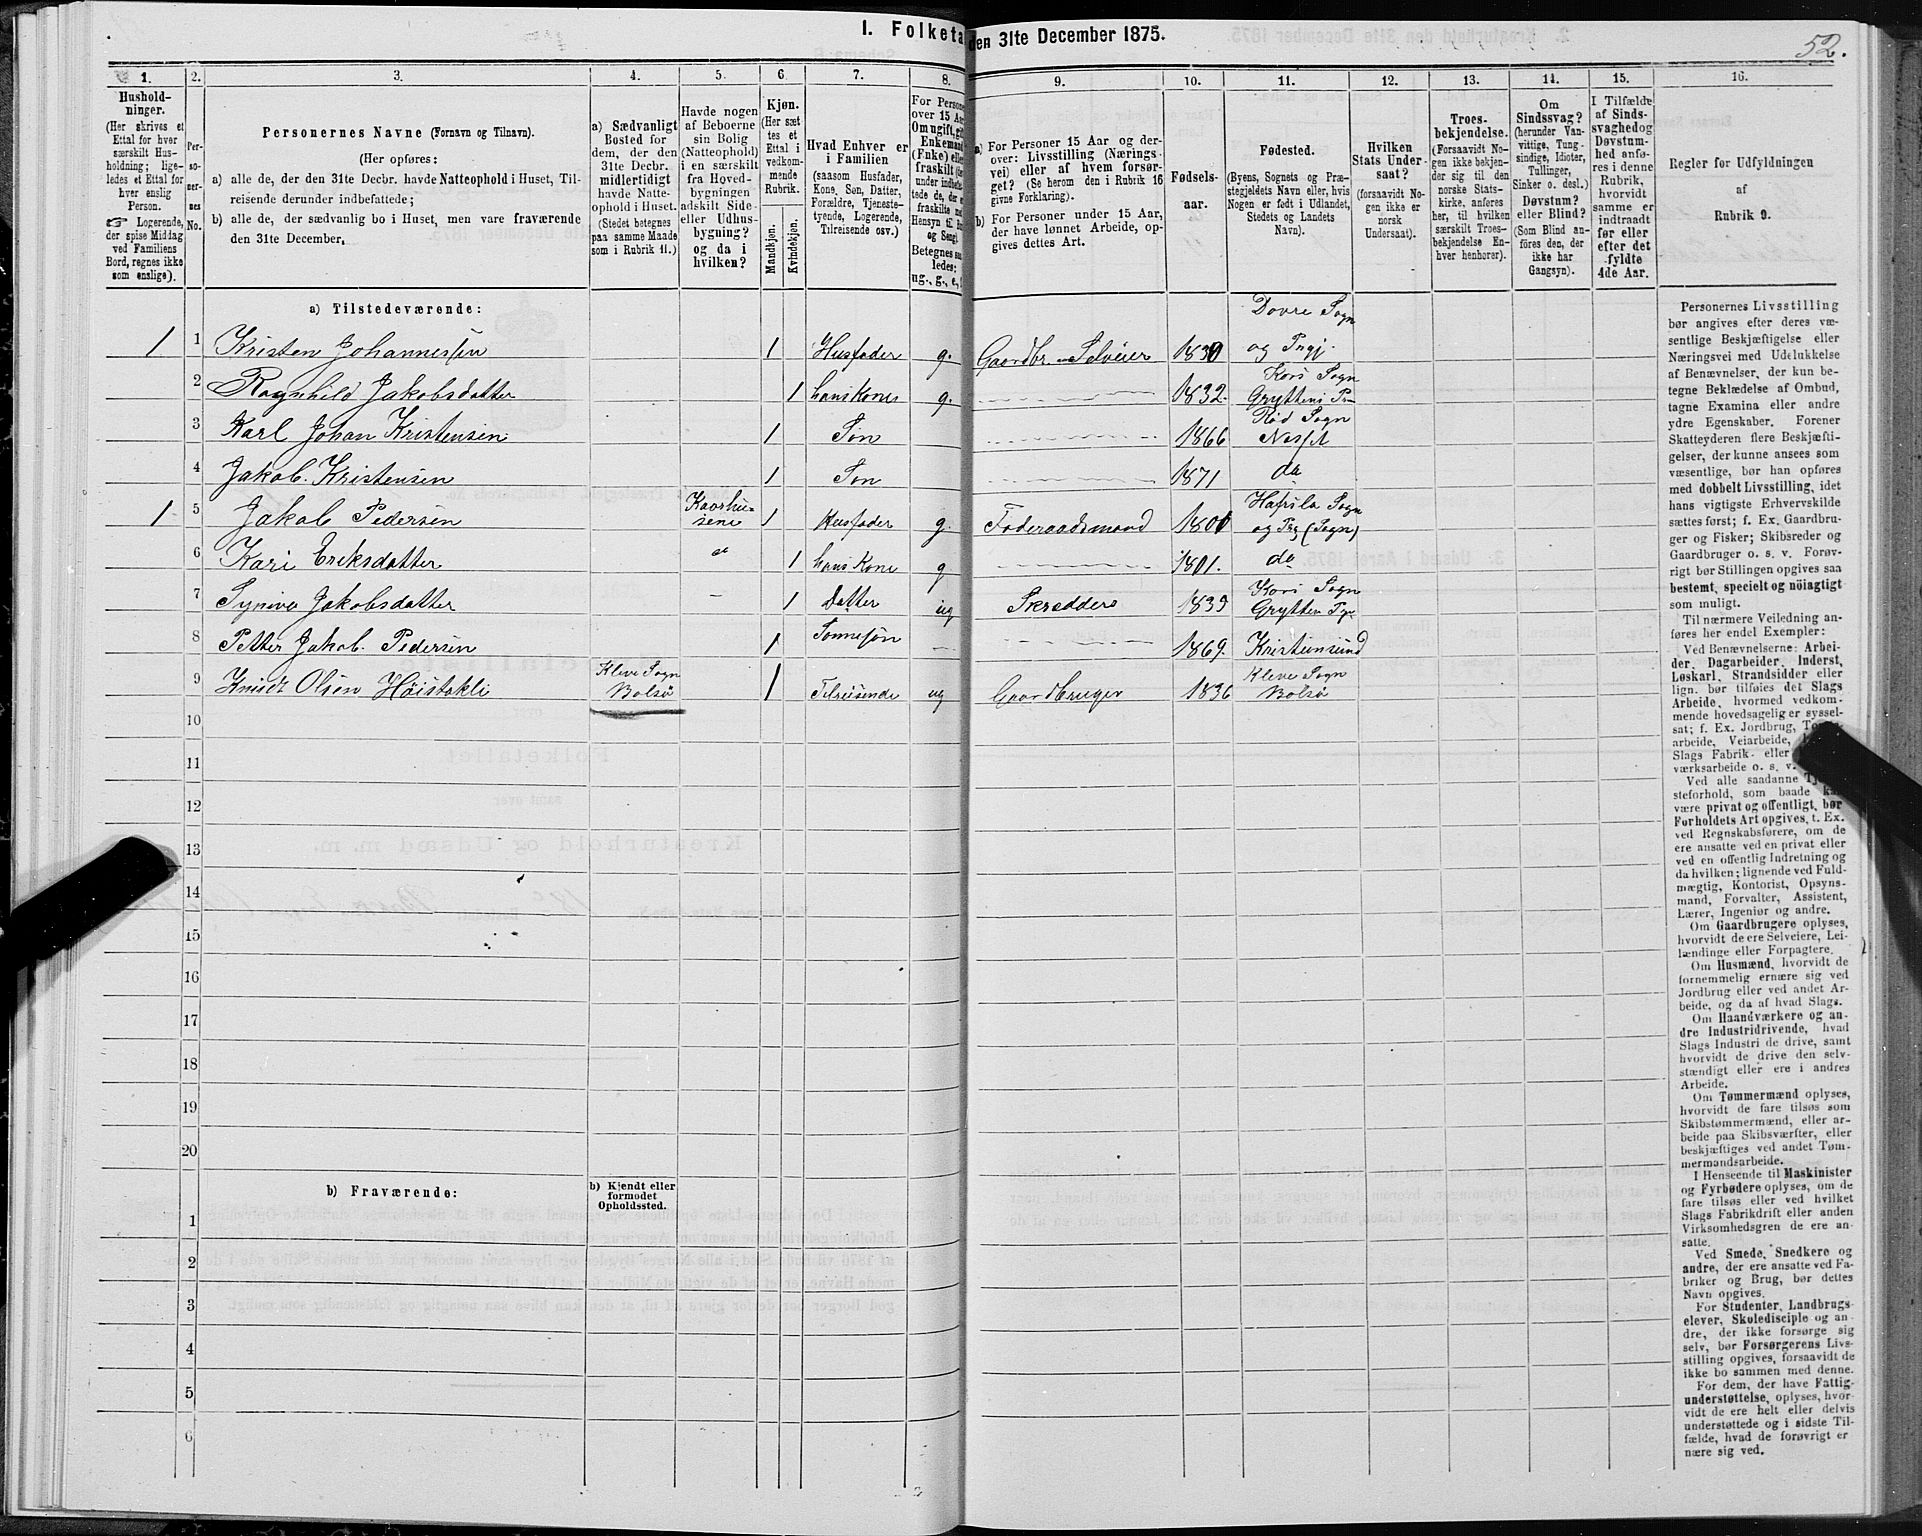 I. Folketa
den 31te December 1875.
52.
1.
2.
3.
4.
5.
6.
7.
8.
9.
10.
11.
12.
13.
14.
15.
16.
Hushold-
ninger.
(Her skrives et
Ettal for hver
særskilt Hus-
holdning; lige-
ledes et Ettal for
hver enslig
Person.
☞ Logerende,
der spise Middag
ved Familiens
Bord, regnes ikke
som enslige).
Per-
so-
ner-
nes
No.
Personernes Navne (Fornavn og Tilnavn).
(Her opføres:
a) alle de, der den 31te Decbr. havde Natteophold i Huset, Til-
reisende derunder indbefattede;
b) alle de, der sædvanlig bo i Huset, men vare fraværende
den 31te December.
a) Sædvanligt
Bosted for
dem, der den
31te Decbr.
midlertidigt
havde Natte-
ophold i Huset.
(Stedet betegnes
paa samme Maade
som i Rubrik 11.)
Havde nogen
af Beboerne
sin Bolig
(Natteophold)
i en særskilt
fra Hoved-
bygningen
adskilt Side-
eller Udhus-
bygning?
og da i
hvilken?
Kjøn.
(Her sæt
tes et
Ettal i
vedkom-
mende
Rubrik.
Mandkjøn.
Kvindekjøn.
Hvad Enhver er
i Familien
(saasom Husfader,
Kone, Søn, Datter,
Forældre, Tjeneste-
tyende, Logerende,
Tilreisende osv.)
For Persone
over 15 Aa
Om ugift, gif
Enkemand
(Fnke) elle
fraskilt
under indbefat
tede de, der e
fraskilte med
Hensyn til
og Seng).
Betegnes saa
ledes:
ug., g., e.,
a) For Personer 15 Aar og der-
over: Livsstilling (Nærings-
vei) eller af hvem forsør-
get? (Se herom den i Rubrik 16
givne Forklaring).
b) For Personer under 15 Aar,
der have lønnet Arbeide, op-
gives dettes Art.
Fødsels-
aar.
Fødested.
(Byens, Sognets og Præ-
stegjeldets Navn eller, hvis
Nogen er født i Udlandet,
Stedets og Landets
Navn).
Hvilken
Stats Under-
saat?
(forsaavidt No-
gen ikke er
norsk
Undersaat).
Troes-
bekjendelse.
(Forsaavidt No-
gen ikke bekjen-
der sig til den
norske Stats-
kirke, anføres
her, til hvilken
særskilt Troes-
bekjendelse En-
hver henhører).
Om
Sindssvag?
(herunder Van-
vittige, Tung-
sindige, Idioter,
Tullinger,
Sinker o. desl.)
Døvstum?
eller Blind?
(Som Blind an-
føres den, der
ikke har
Gangsyn).
I Tilfælde
af Sinds-
svaghedog
Døvstum-
hed anfø-
res i denne
Rubrik,
hvorvidt
samme er
indtraadt
før eller
efter det
fyldte
4de Aar.
Regler for Udfyldningen
af
Rubrik 9.
a) Tilstedeværende:
Dovre Sogn
1 1 Kristen Johannessen 1 Husfader g. Gaardbr. Selveier 1830 og Prgj.
Kors Sogn
2 Ragnhild Jakobsdatter 1 hans Kone g. 1832. Gryttens Pr
Rød Sogn
3 Karl Johan Kristensen 1 Søn 1866 Nesset
4 Jakob. Kristensen 1 Søn 1871 do
Kaarhu- Hafslo Sogn
1 5 Jakob Pedersen sene 1 Husfader g. Føderaadsmand 1801 og Prg (Sogn)
6 Kari Eriksdatter do 1 hans Kone g 1801. do
Kors Sogn
7 Synive Jakobsdatter 1 Datter ug Skredder 1835 Grytten
8 Petter Jakob. Pedersen 1 Sønnesøn 1869. Kristiansund
Kleve Sogn Kleve Sogn
9 Knudt Olsen Høistakli Bolsø 1 Tilreisende ug Gaardbruger 1836 Bolsø
10
11
12
13
14
15
16
17
18
19
20
b) Fraværende:
b) Kjendt eller
formodet
Opholdssted.
1
2
3
4
5
6
Personernes Livsstilling
bør angives efter deres væ-
sentlige Beskjæftigelse eller
Næringsvei med Udelukkelse
af Benævnelser, der kun be-
tegne Beklædelse af Ombud,
tagne Examina eller andre
ydre Egenskaber. Forener
Skatteyderen flere Beskjæfti-
gelser, der kunne ansees som
væsentlige, bør han opføres
med dobbelt Livsstilling, idet
hans vigtigste Erhvervskilde
sættes først; f. Ex. Gaardbru-
ger og Fisker; Skibsreder og
Gaardbruger o. s. v. Forøv-
rigt bør Stillingen opgives saa
bestemt, specielt og nöiagtigt
som muligt.
Til nærmere Veiledning an-
føres her endel Exempler:
Ved Benævnelserne: Arbei-
der, Dagarbeider, Inderst,
Løskarl, Strandsidder eller
lign. bør tilføies det Slags
Arbeide, hvormed vedkom-
mende hovedsagelig er syssel-
sat; f. Ex. Jordbrug,
arbeide, Veiarbeide,
Slags Fabrik- eller
værksarbeide o. s. v.
Ved alle saadanne
steforhold, som baade
være privat og offentligt, bør
Forholdets Art opgives, t. Ex.
ved Regnskabsførere, om de
ere ansatte ved en privat eller
ved en offentlig Indretning og
da hvilken; lignende ved Fuld-
mægtig, Kontorist, Opsyns-
mand, Forvalter, Assistent,
Lærer, Ingeniør og andre.
Om Gaardbrugere oplyses,
hvorvidt de ere Selveiere, Lei-
lændinge eller Forpagtere.
Om Husmænd, hvorvidt de
fornemmelig ernære sig ved
Jordbrug eller ved andet Ar-
beide, og da af hvad Slags.
Om Haandværkere og an-
dre Industridrivende, hvad
Slags Industri de drive, samt
hvorvidt de drive den selv-
stændigt eller ere i andres
Arbeide.
Om Tømmermænd oplyses,
hvorvidt de fare tilsøs som
Skibstømmermænd, eller ar-
beide paa Skibsværfter, eller
beskjæftiges ved andet Tøm-
mermandsarbeide.
I Henseende til Maskinister
og Fyrbødere oplyses, om de
fare tilsøs eller ved hvilket
Slags Fabrikdrift eller anden
Virksomhedsgren de ere an-
satte.
Ved Smede, Snedkere og
andre, der ere ansatte ved Fa-
briker og Brug, bør dettes
Navn opgives.
For Studenter, Landbrugs-
elever, Skoledisciple og an-
dre, der ikke forsørge sig
selv, bør Forsørgerens Livs-
stilling opgives, forsaavidt de
ikke bo sammen med denne.
For dem, der have Fattig-
understøttelse, oplyses, hvor-
vidt de ere helt eller delvis
understøttede og i sidste Til-
fælde, hvad de forøvrigt er
nære sig ved.